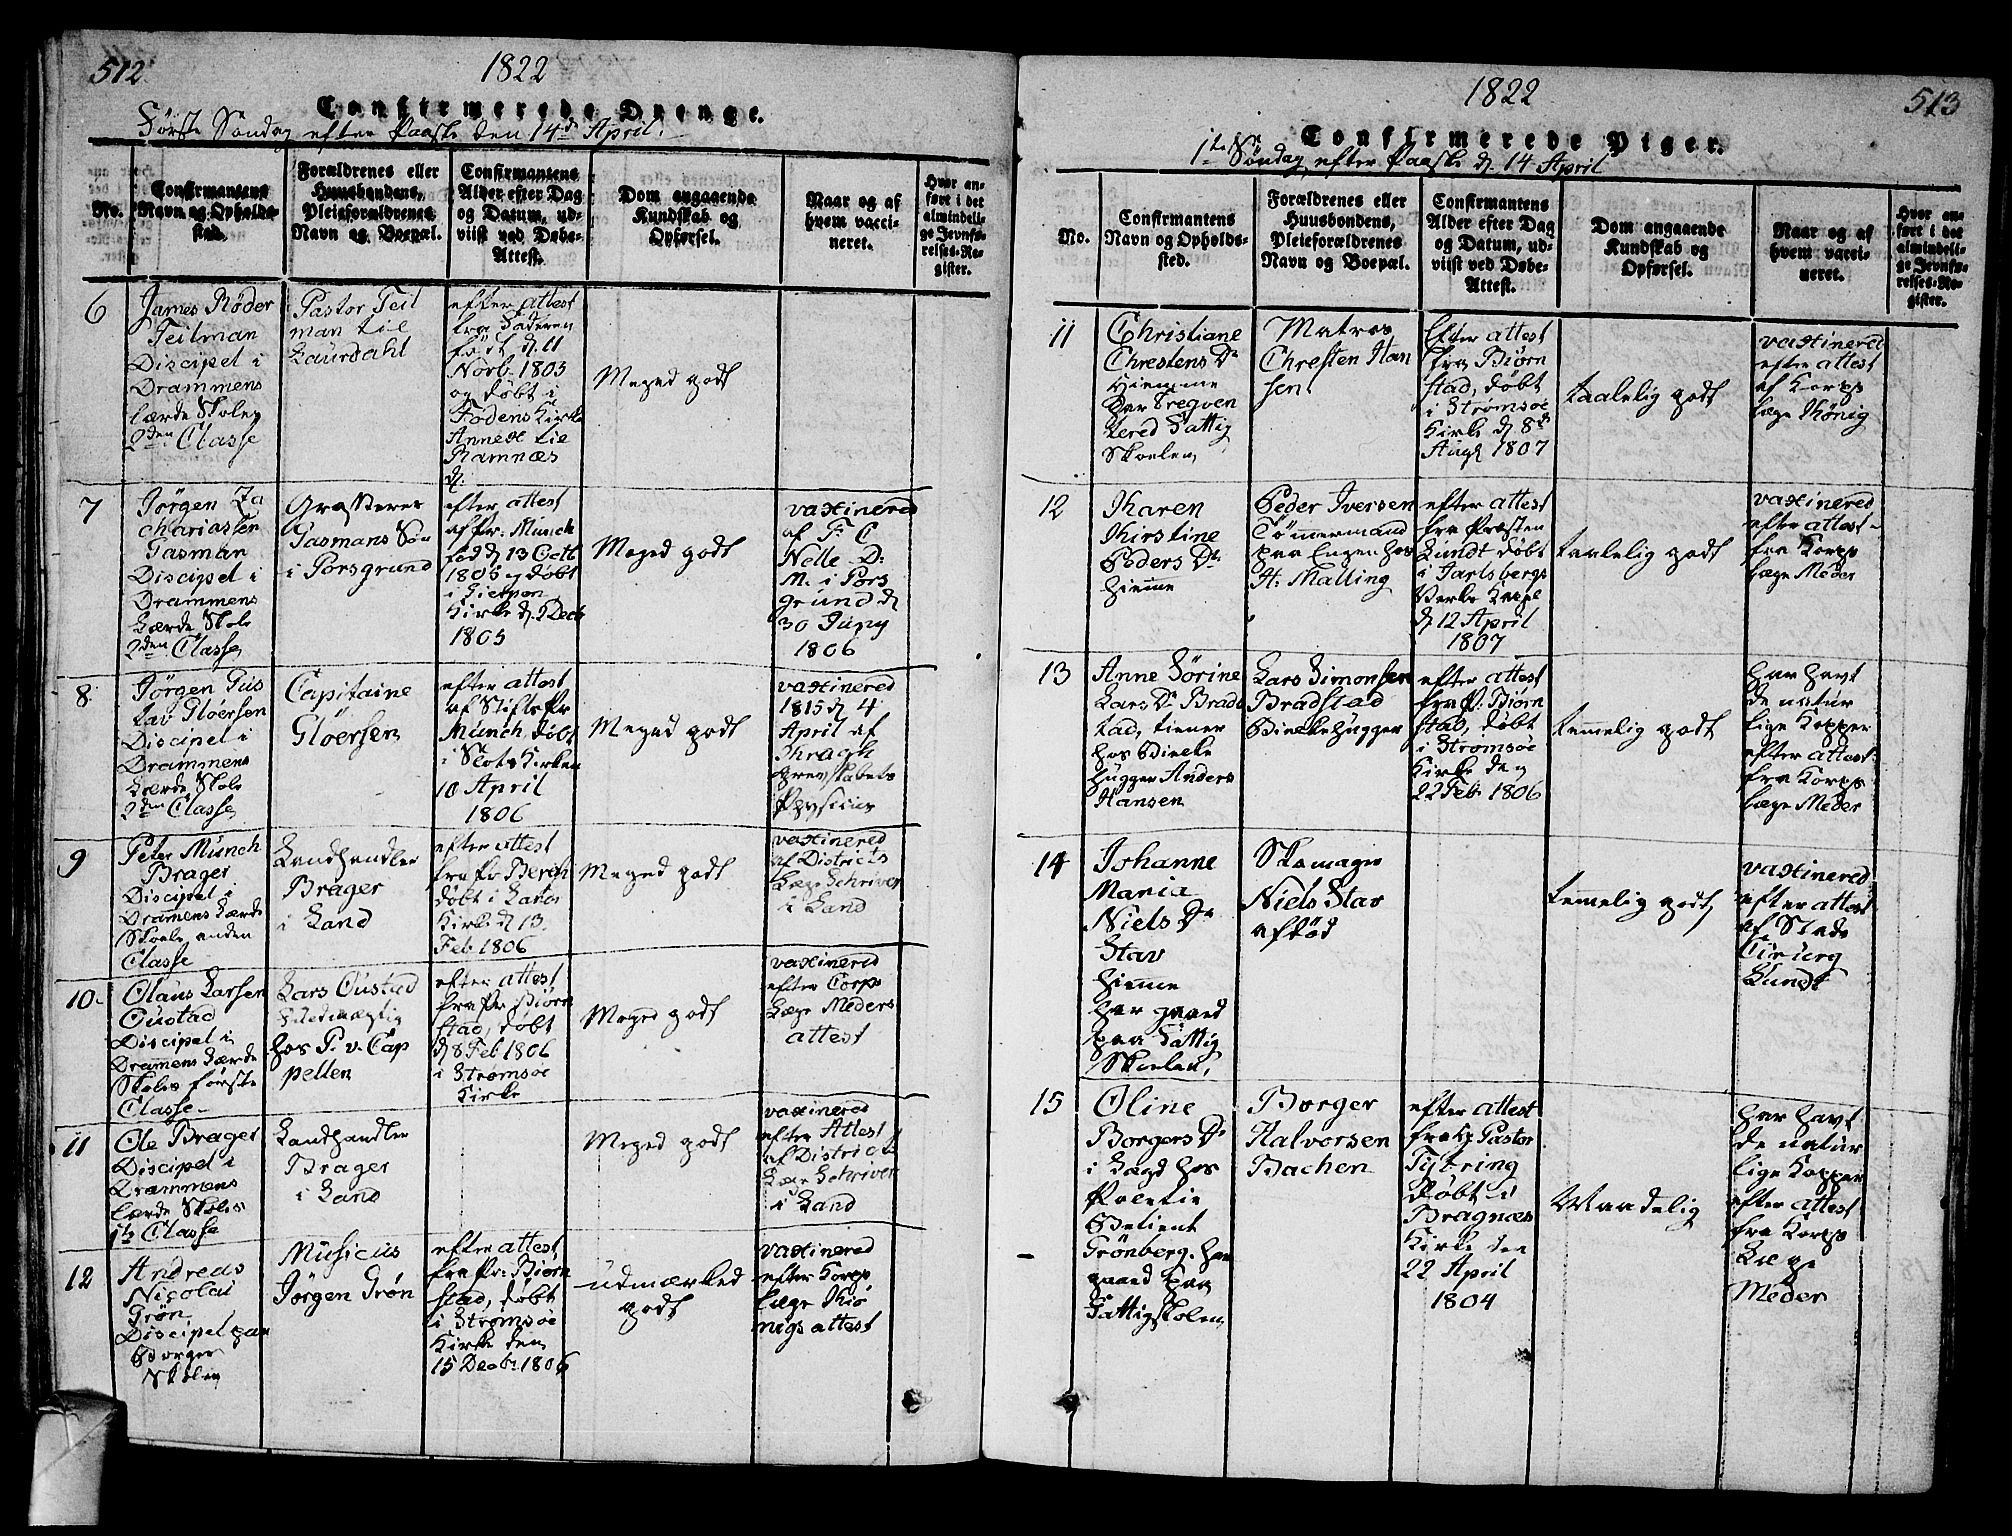 512.
1822
Confirmerede Drenge.
Første Søndag efter Paaske den 14de April.
No.
Confirmantens
Navn og Opholds-
sted.
Forældrenes eller
Huusbondens,
Pleieforældrenes
Navn og Boepæl.
Confirmantens
Alder efter Dag
og Datum, ud-
viist ved Døbe-
Attest.
Dom angaaende
Kundskab og
Opførsel.
Naar og af
hvem vacci-
neret.
Hvor an-
ført i det
almindeli-
ge Jevnfø-
relses-Re-
gister.
6
James Røder
Teilman
Discipel i
Drammens
lærde Skoles
2den Classe
Pastor Teil
man til
Laurdahl
efter attest
fra Faderen
født d. 11
Novb. 1803
og døbt i
Fodens Kirke
Annex til
Ramnæs
d.
Meged godt
7
Jørgen Za
chariassen
Tasman
Discipel i
Drammens
Lærde Skole
2den Classe
Tasmans
i Porsgrund
efter attest
af Pr. Munch
død d. 13 Octb
1805 døbt
i
Kirke d. Decb
1805
Meged godt
vaxinered
af F. C.
Nelle D:
M. i Pors
grund d
30 Juny
1806
8
Jørgen Gus
tav Gløersen
Discipel i
Drammens
Lærde Skole
2den Classe
Capitaine
Gløersen
efter attest
af Stifts Pr
Munch døbt
i Slots Kirken
10 April
1806
Meged godt
vaxinered
1815 d 4
April af
Thragh
Grevskabets
Physicus
9
Peter Munch
Brager
Discipel i
Drammens Lærde
Skole anden
Classe
Landhandler
Brager
i Land
efter attest
fra Pr Berch
døbt i Lands
Kirke d 13
Feb 1806
Meged godt
vaxinered
af Districts
Læge Schriver
i Land
10
Olaus Larsen
Oustad
Discipel i
Drammens Lærde
Skoles første
Classe
Lars Oustad
hos P. v. Cap
pellen
efter attest
fra Pr Biørn
stad, døbt
d 8 Feb 1806
i Strømsøe
Kirke
Meged godt
vaxinered
efter Corps
Læge Meders
attest
11
Ole Brager
Discipel i
Drammens
lærde Skoles
1te Classe
Landhandler
Brager
i Land
Meged godt
vaxinered
efter Attest
af Districts
Læge Schriver
i Land
12
Andreas
Nicolai
Grøn
Discipel paa
Borger
Skolen
Musicus
Jørgen Grøn
efter attest
fra Pr. Biørn
stad, døbt
i Strømsøe
Kirke den
15 Decb. 1806
udmærked
godt
vaxinered
efter Korps
læge Kiø
nigs attest
1822
513
Confirmerede Piger.
1te Søndag efter Paaske d. 14 April
No.
Confirmantens
Navn og Opholds-
sted.
Forældrenes eller
Huusbondens,
Pleieforældrenes
Navn og Boepæl.
Confirmantens
Alder efter Dag
og Datum, ud-
viist ved Døbe-
Attest.
Dom angaaende
Kundskab og
Opførsel.
Naar og af
hvem vacci-
neret.
Hvor an-
ført i det
almindeli-
ge Jevnfø-
relses-Re-
gister.
11
Christiane
Chrestens Dr
hiemme
har freqven
tered Fattig
Skolen
Matros
Chresten Han
sen
Efter attest
fra Biørn
stad, døbt
i Strømsøe
Kirke d 8de
Aug 1807
taalelig godt
vaxinered
efter attest
af Korps
læge Kønig
12
Karen
Kirstine
Peders Dr
hiemme
Peder Iversen
Tømmermand
paa Engen hos
H. Malling
efter attest
fra Præsten
Lundt døbt
i Jarlsbergs
Verks Capel
d 12 April
1807
taalelig godt
vaxinered
efter attest
fra Korps
læge Meder
13
Anne Sørine
Lars Dr Brad
stad, tiener
hos Bielke
hugger Anders
Hansen
Lars Simonsen
Bradstad
Bielkehugger
efter attest
fra P. Biørn
stad, døbt
i Strømsøe
Kirke den
22 Feb 1806
temmelig godt
har havt
de natur
lige Kopper
efter attest
fra Korps
læge Meder
14
Johanne
Maria
Niels Dr
Stav
hiemme
har gaaed
paa Fattig
Skolen
Skomager
Niels Stav
afdød
temmelig godt
vaxinered
efter attest
af Stads
Cirurg
Lundt
15
Oline
Borgers Dr
i Lægd hos
Politie
Betient
Grønberg. har
gaaed paa
Fattigskolen
Borger
Halvorsen
Bachen
efter attest
fra Hr Pastor
Tybring
døbt i
Bragnæs
Kirke den
22 April
1804
Maadelig
har havt
de natur
lige Kopper
efter attest
fra Korps
Læge
Meder